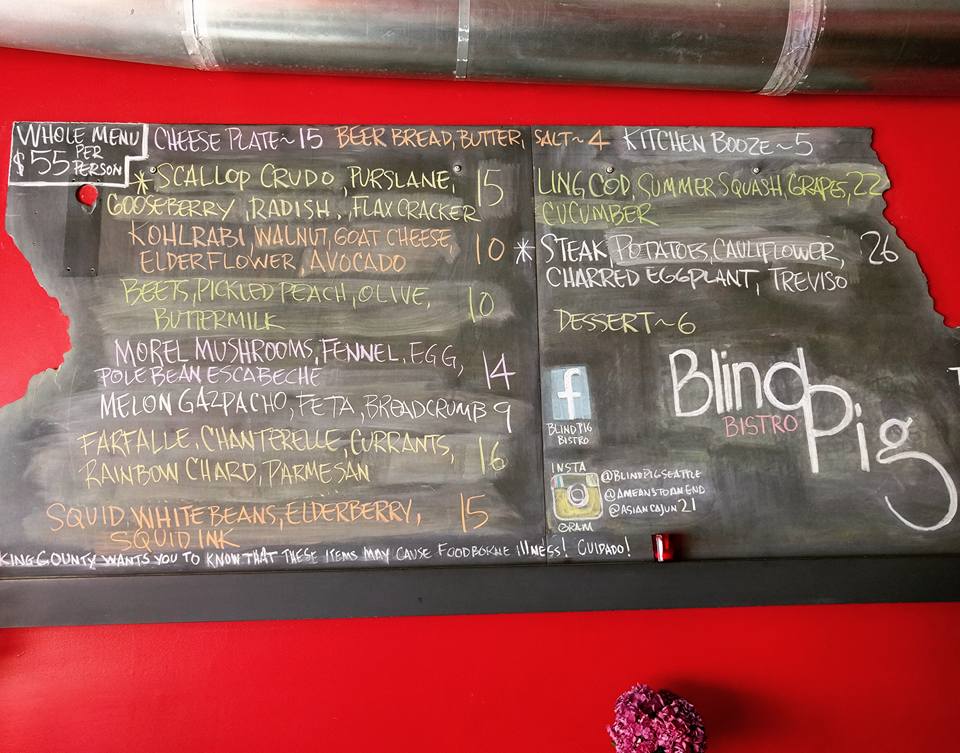 WHOLE MENU
PER
$55 PERSON
CHEESE PLATE~15 BEER BREAD, BUTTER, SALT~4 KITCHEN BOOZE~5
*SCALLOP CRUDO, PURSLANE, 15
GOOSEBERRY, RADISH, FLAX CRACKER
KOHLRABI, WALNUT, GOAT CHEESE, 10
ELDERFLOWER, AVOCADO
BEETS, PICKLED PEACH, OLIVE, 10
BUTTERMILK
MOREL MUSHROOMS, FENNEL, EGG, 14
POLE BEAN ESCABECHE
MELON GAZPACHO, FETA, BREADCRUMB 9
FARFALLE, CHANTERELLE, CURRANTS, 16
RAINBOW CHARD, PARMESAN
SQUID, WHITE BEANS, ELDERBERRY, 15
SQUID INK
KING COUNTY WANTS YOU TO KNOW THAT THESE ITEMS MAY CAUSE FOODBORNE illNESS! CUIDADO!
LING COD, SUMMER SQUASH, GRAPES, 22
CUCUMBER
*STEAK, POTATOES, CAULIFLOWER, 26
CHARRED EGGPLANT, TREVISO
DESSERT~6
Blind
BISTRO
Pig
f
BLIND PIG
BISTRO
INSTA
GRAM
@BLINDPIGSEATTLE
@AMEANSTOANEND
@ASIANCAJUN21